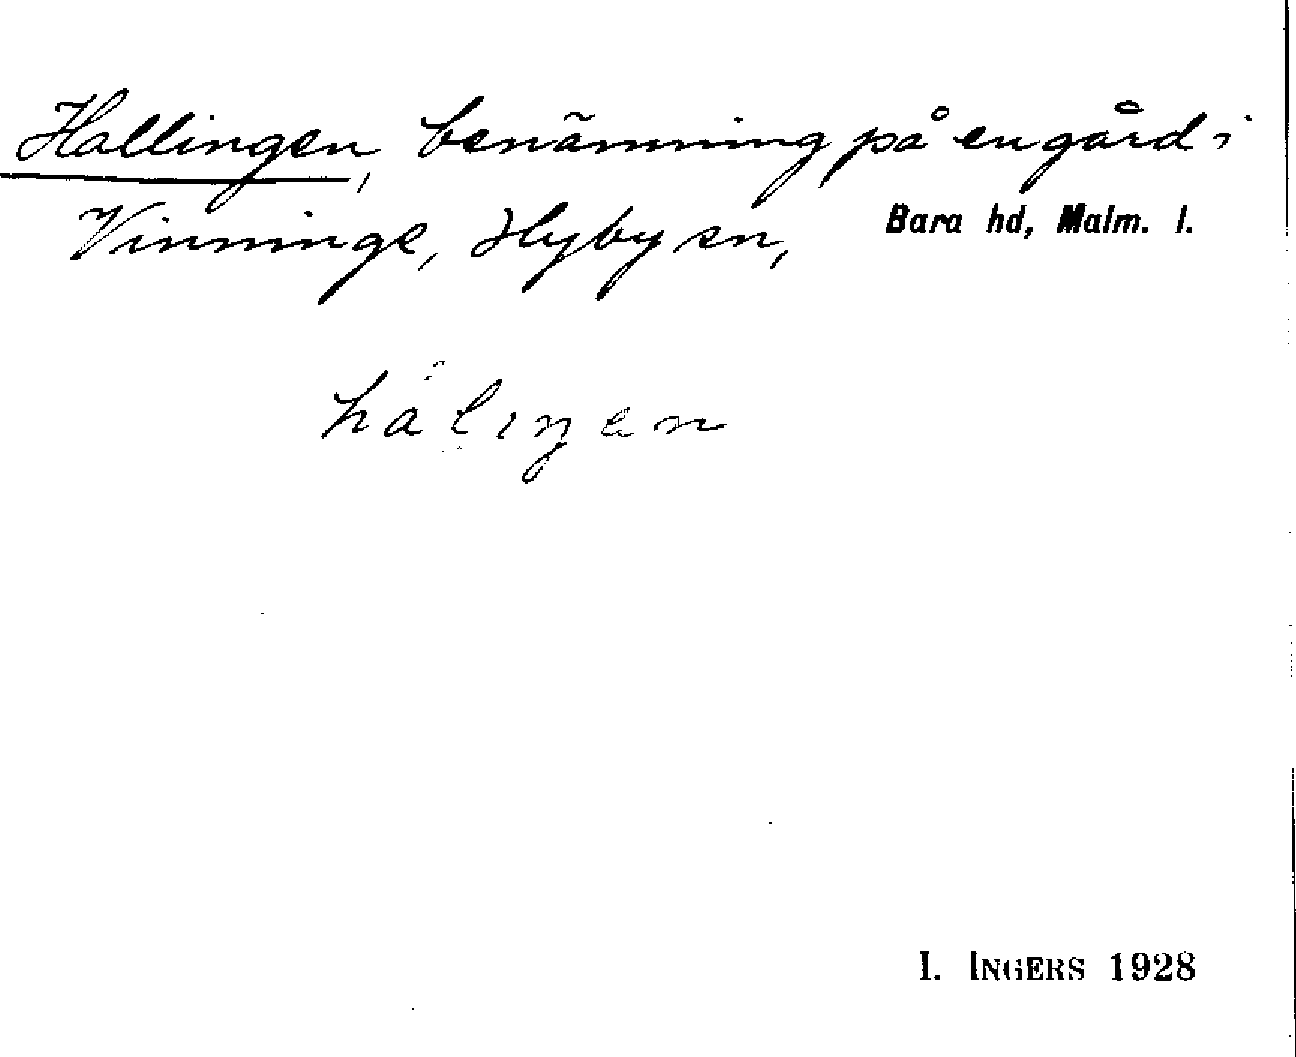 Hallingen, benämning på en gård i
Vinninge, Hyby sn, Bara hd, Malm. l.
hàlıŋen
I. INGERS 1928